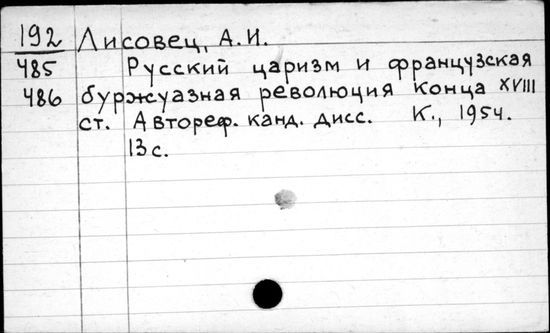 192 Лисовец, А.И.
485 Русский царизм и французская
486 буржуазная революция конца XVIII
ст. Автореф. канд. дисс. К., 1954.
13 с.